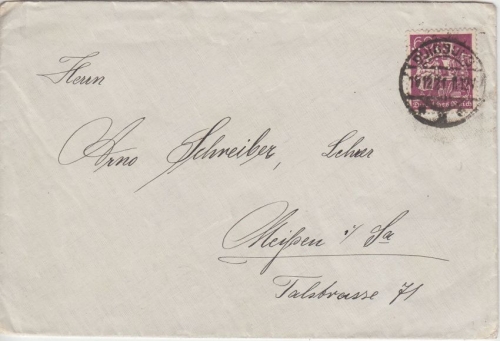 60
Herrn
Arno Schreiber, Lehrer
Meißen i/ Sa
Talstrasse 71